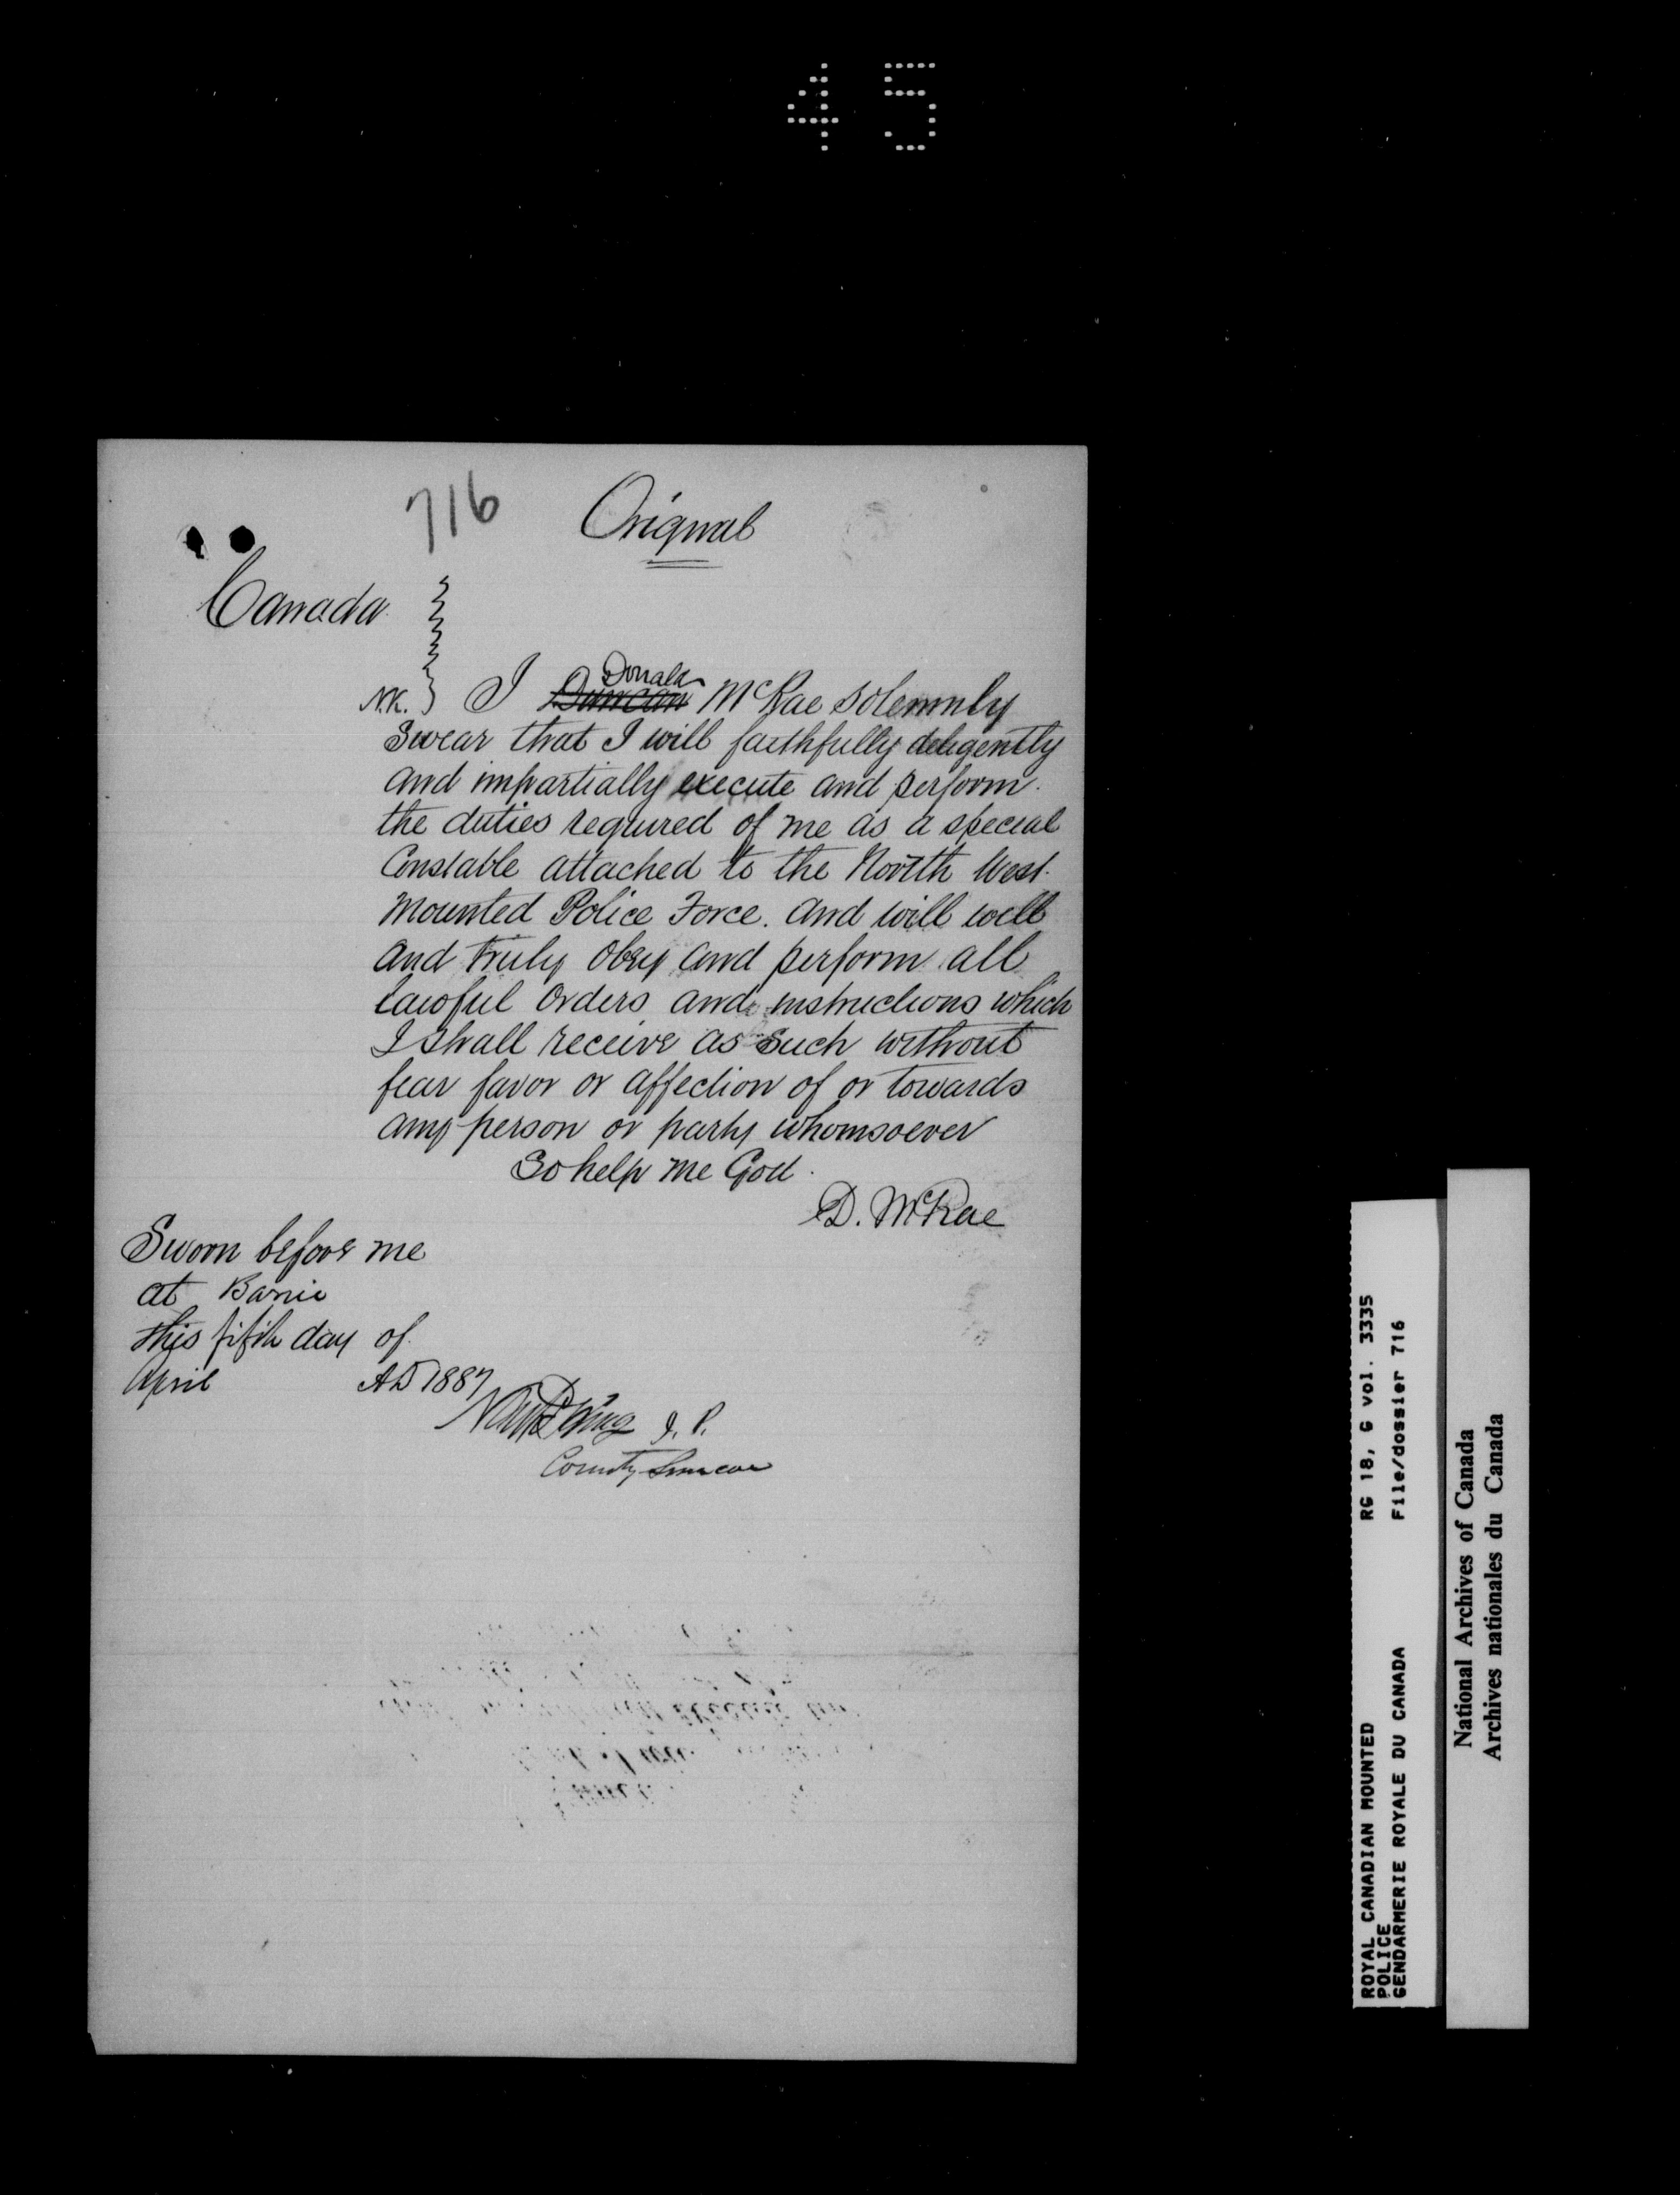 45
716
Original
Canada
N.K. I Duncan Donald McRae solemnly
Swear that I will faithfully deligently
and impartially execute and perform.
the duties required of me as a special
Constable attached to the North West.
Mounted Police Force. and will well
and truly obey and perform all
lawful orders and instructions which
I shall receive as such without
fear favor or affection of or towards
any person or party whomsoever
So help me God.
D. McRae
Sworn before me
at Barrie
this fifth day of
April AD 1887
King J. P.
County Simcoe
ROYAL CANADIAN MOUNTED RG 18, G vol. 3335
POLICE
GENDARMERIE ROYALE DU CANADA File/dossier 716
National Archives of Canada
Archives nationales du Canada